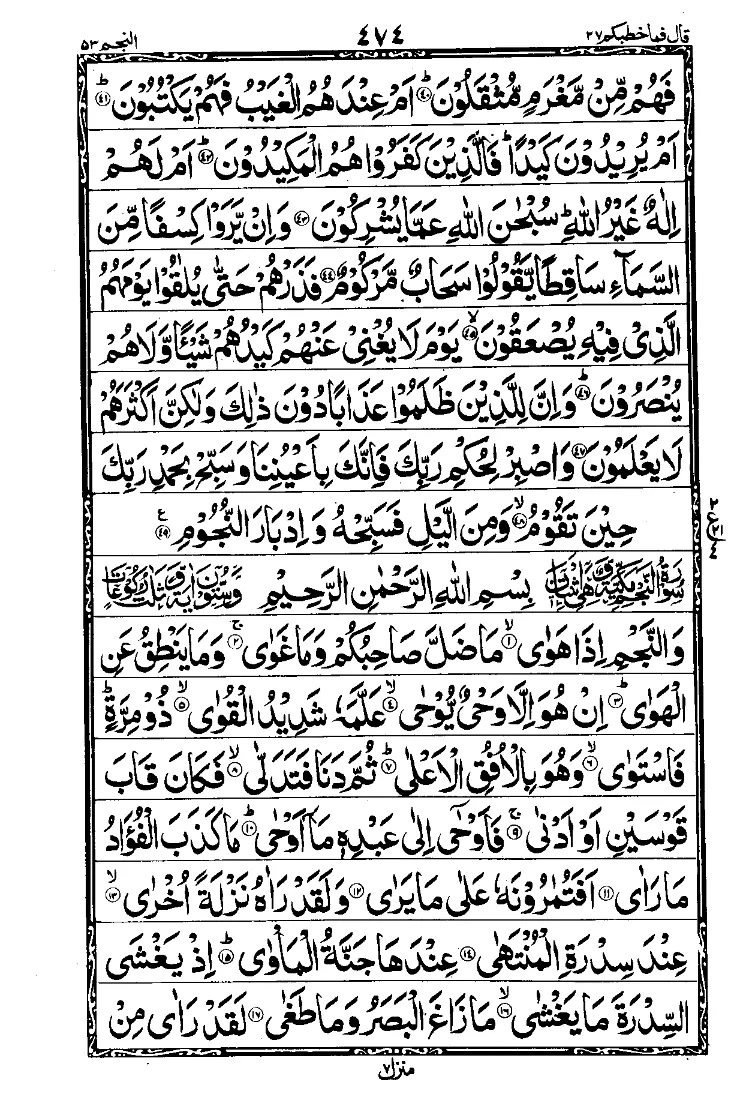 قال فما خطبكم ٢٧ ٤٧٤ النجم ٥٣
فَهُمْ مِّنْ مَّغْرَمٍ مُّثْقَلُوْنَ ۟ؕ۴۰ اَمْ عِنْدَهُمُ الْغَيْبُ فَهُمْ يَكْتُبُوْنَ ؕ۴۱
اَمْ يُرِيْدُوْنَ كَيْدًا ؕ فَالَّذِيْنَ كَفَرُوْا هُمُ الْمَكِيْدُوْنَ ؕ۴۲ اَمْ لَهُمْ
اِلٰهٌ غَيْرُ اللّٰهِ ؕ سُبْحٰنَ اللّٰهِ عَمَّا يُشْرِكُوْنَ ۴۳ وَاِنْ يَّرَوْا كِسْفًا مِّنَ
السَّمَآءِ سَاقِطًا يَّقُوْلُوْا سَحَابٌ مَّرْكُوْمٌ ۴۴ فَذَرْهُمْ حَتّٰى يُلٰقُوْا يَوْمَهُمُ
الَّذِىْ فِيْهِ يُصْعَقُوْنَ ۙ۴۵ يَوْمَ لَا يُغْنِىْ عَنْهُمْ كَيْدُهُمْ شَيْـًٔا وَّلَا هُمْ
يُنْصَرُوْنَ ؕ۴۶ وَاِنَّ لِلَّذِيْنَ ظَلَمُوْا عَذَابًا دُوْنَ ذٰلِكَ وَلٰكِنَّ اَكْثَرَهُمْ
لَا يَعْلَمُوْنَ ۴۷ وَاصْبِرْ لِحُكْمِ رَبِّكَ فَاِنَّكَ بِاَعْيُنِنَا وَسَبِّحْ بِحَمْدِ رَبِّكَ
حِيْنَ تَقُوْمُ ۙ۴۸ وَمِنَ الَّيْلِ فَسَبِّحْهُ وَاِدْبَارَ النُّجُوْمِ ع۴۹
سُوْرَةُ النَّجْمِ مَكِّيَّةٌ وَّهِىَ اثْنَتَانِ بِسْمِ اللّٰهِ الرَّحْمٰنِ الرَّحِيْمِ وَسِتُّوْنَ اٰيَةً وَّثَلٰثُ رُكُوْعَاتٍ
وَالنَّجْمِ اِذَا هَوٰى ۙ۱ مَا ضَلَّ صَاحِبُكُمْ وَمَا غَوٰى ۚ۲ وَمَا يَنْطِقُ عَنِ
الْهَوٰى ؕ۳ اِنْ هُوَ اِلَّا وَحْىٌ يُّوْحٰى ۙ۴ عَلَّمَهٗ شَدِيْدُ الْقُوٰى ۙ۵ ذُوْ مِرَّةٍ ؕ
فَاسْتَوٰى ۙ۶ وَهُوَ بِالْاُفُقِ الْاَعْلٰى ؕ۷ ثُمَّ دَنَا فَتَدَلّٰى ۙ۸ فَكَانَ قَابَ
قَوْسَيْنِ اَوْ اَدْنٰى ۚ۹ فَاَوْحٰٓى اِلٰى عَبْدِهٖ مَاۤ اَوْحٰى ؕ۱۰ مَا كَذَبَ الْفُؤَادُ
مَا رَاٰى ۱۱ اَفَتُمٰرُوْنَهٗ عَلٰى مَا يَرٰى ۱۲ وَلَقَدْ رَاٰهُ نَزْلَةً اُخْرٰى ۙ۱۳
عِنْدَ سِدْرَةِ الْمُنْتَهٰى ۱۴ عِنْدَهَا جَنَّةُ الْمَاْوٰى ؕ۱۵ اِذْ يَغْشَى
السِّدْرَةَ مَا يَغْشٰى ۙ۱۶ مَا زَاغَ الْبَصَرُ وَمَا طَغٰى ۱۷ لَقَدْ رَاٰى مِنْ
منزل ٧